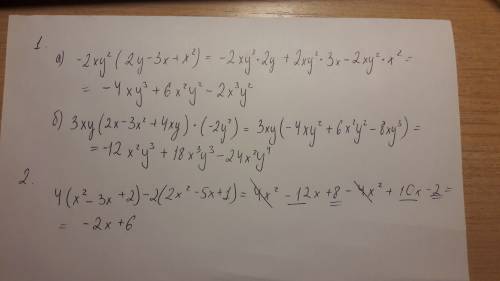 1.
а) -2xy²(2y-3x+x²) = -2xy²·2y + 2xy²·3x - 2xy²·x² =
= -4xy³ + 6x²y² - 2x³y²
б) 3xy(2x-3x²+4xy)·(-2y²) = 3xy(-4xy²+6x²y²-8xy³) =
= -12x²y³ + 18x³y³ - 24x²y⁴
2.
4(x²-3x+2)-2(2x²-5x+1) = 4x² - 12x + 8 - 4x² + 10x - 2 =
= -2x+6